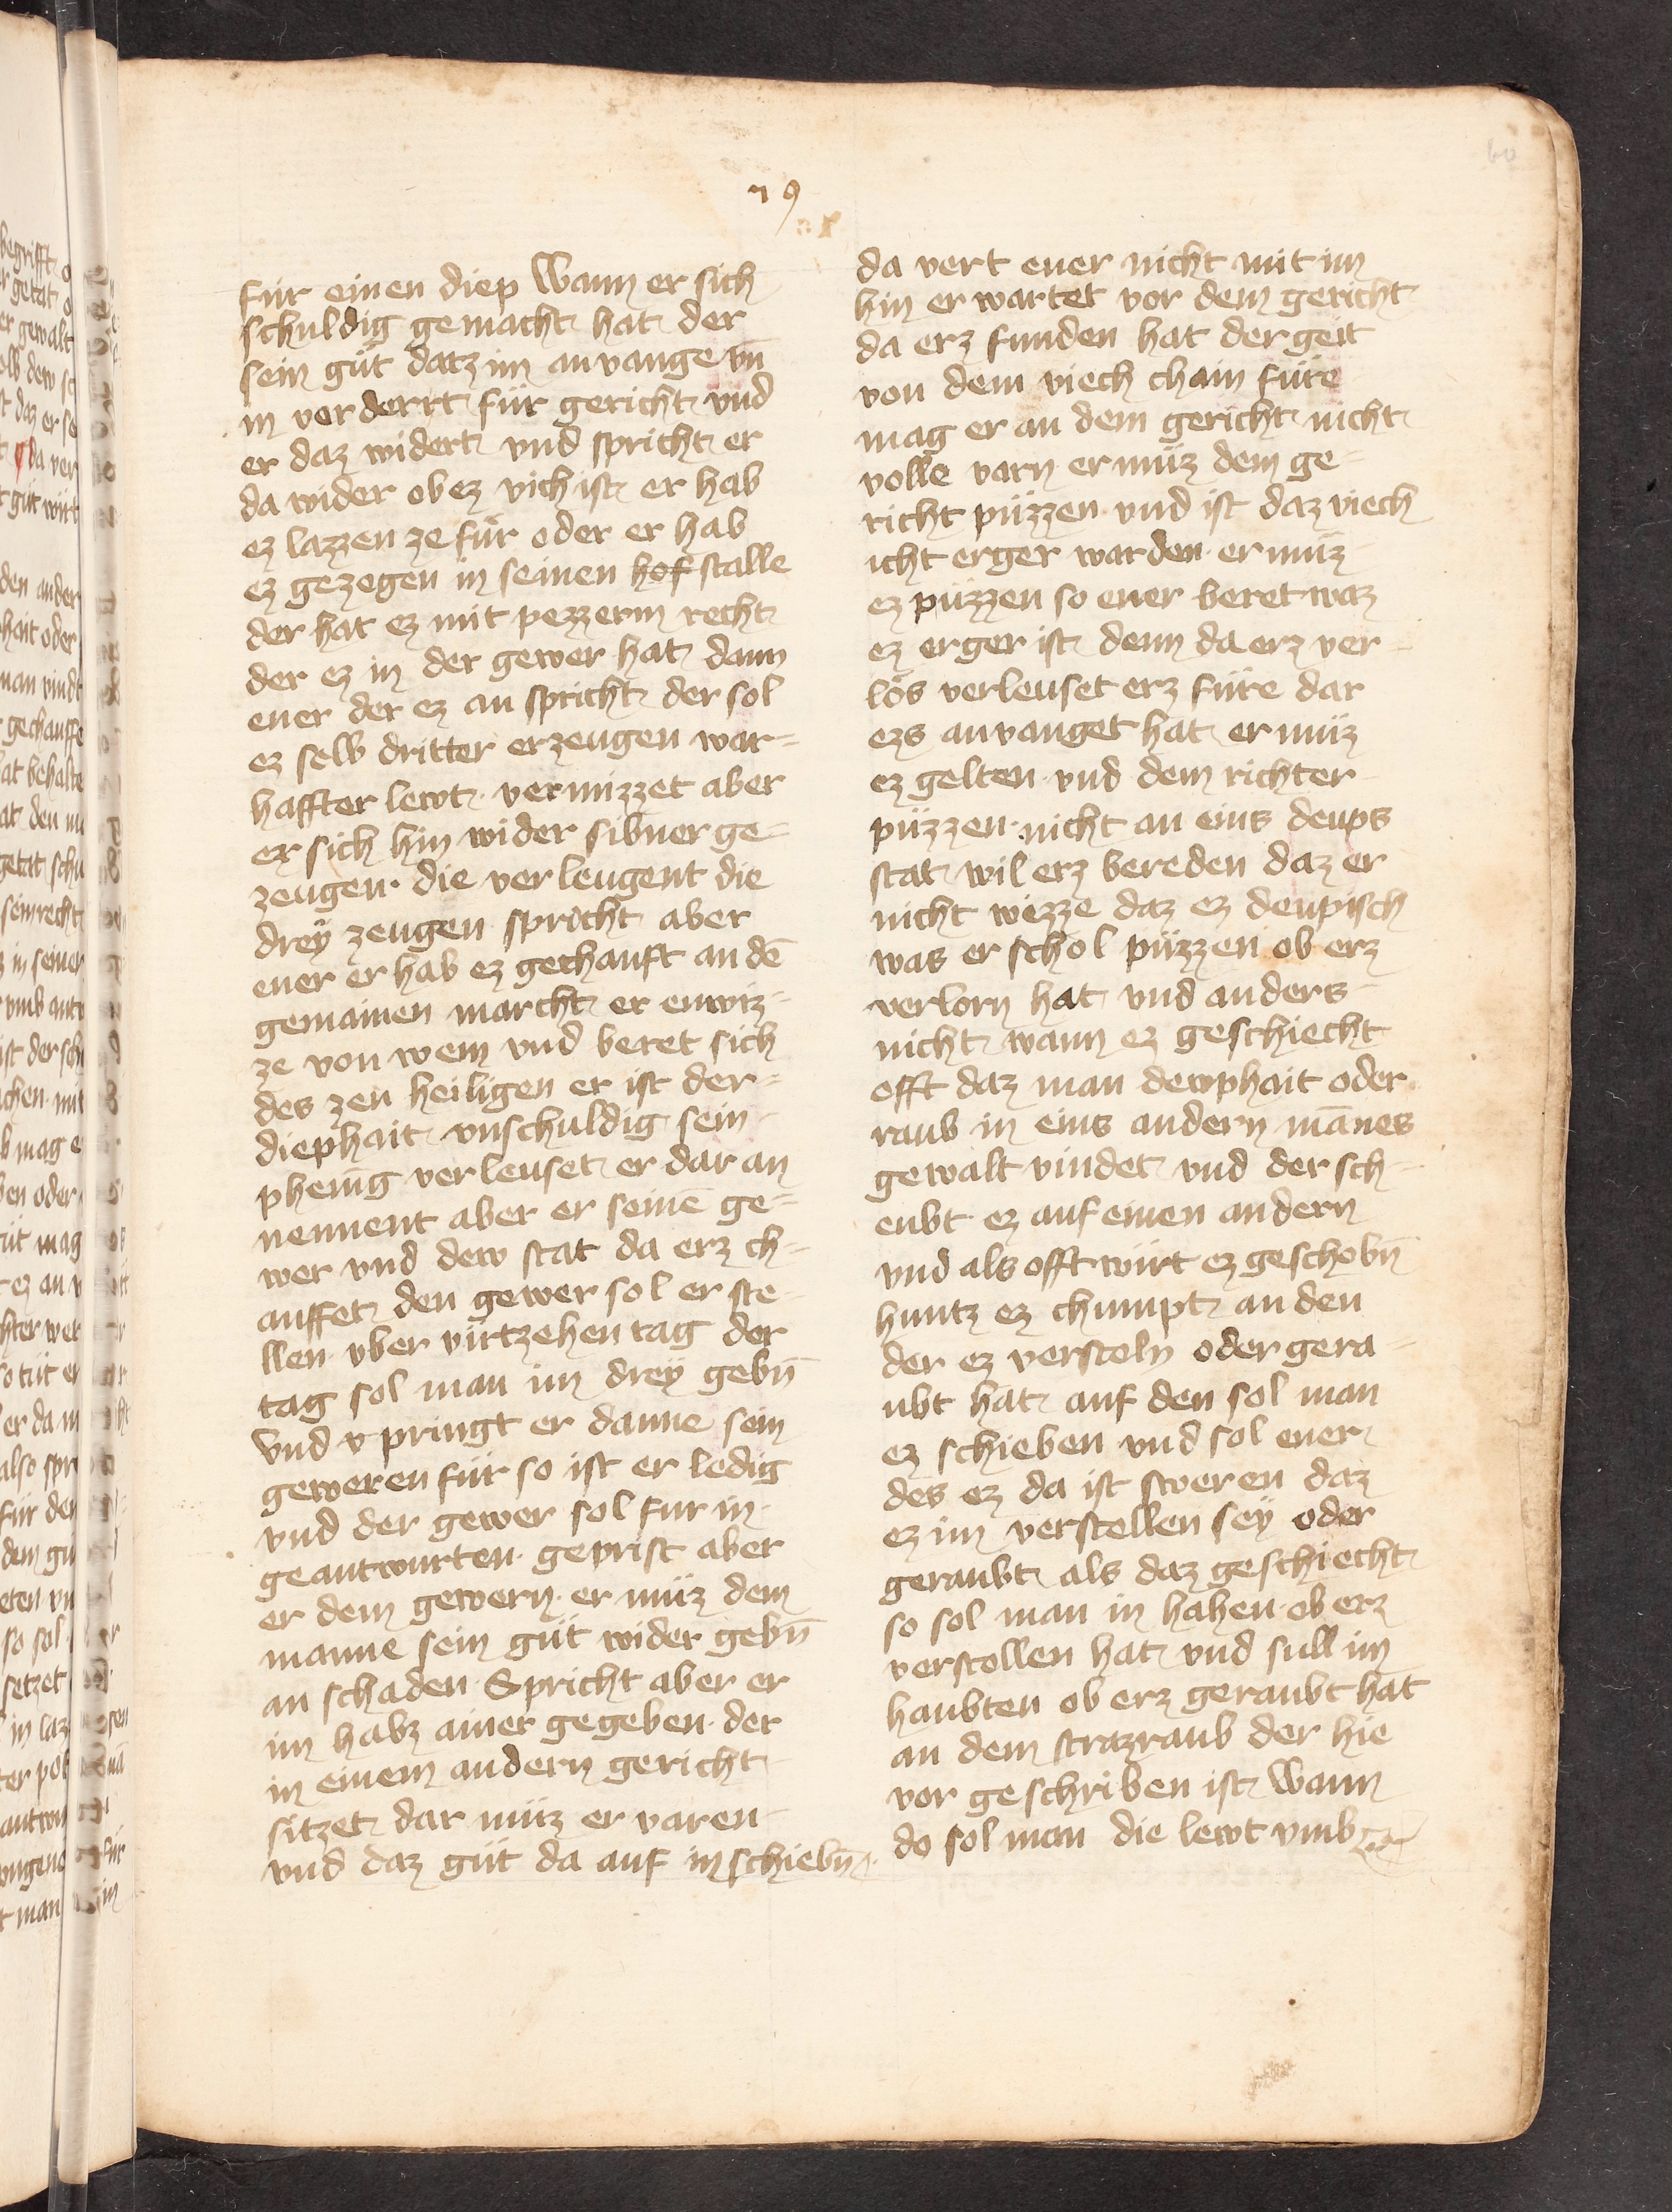 79
60
für einen diep Wann er sich
schuldig gemacht hat der
sein güt datz im anvange vn̄
in vorderrt für gericht vnd
er daz widert vnd spricht er
da wider ob ez vich ist er hab
ez lazzen ze für oder er hab
ez gezegen in seinen hof stalle
der hat ez mit pezzerm recht
der ez in der gewer hat dann
ener der ez an spricht der sol
ez selb dritter erzeugen war=
haffter lewt vermizzet aber
er sich hin wider sibner ge=
zeugen die verleugent die
dreÿ zeugen spricht aber
ener er hab ez gechauft an dē
gemainen marcht er enwiz=
ze von wem vnd beret sich
des zen heiligen er ist der=
diephait vnschuldig sein
phenīg verleuset er dar an
nennent aber er seinē ge=
wer vnd dew stat da erz ch=
auffet den gewer sol er ste
llen vber virtzehen tag der
tag sol man im dreÿ gebn̄
Vnd v pringt er danne sein
geweren für so ist er ledig
vnd der gewer sol fur in
geantwurten geprist aber
er dem gewern er müz dem
manne sein güt wider gebn̄
an schaden Spricht aber er
im habz ainer gegeben der
in einem andern gericht
sitzet dar müz er varen
vnd daz güt da auf in schiebn̄
da vert ener nicht mit im
hin er wartet vor dem gericht
da erz funden hat der geit
von dem viech chain füre
mag er an dem gericht nicht
volle varn er müz dem ge=
richt püzzen vnd ist daz viech
icht erger warden er müz
ez püzzen so ener beret waz
ez erger ist denn da erz ver
lös verleuset erz füre dar
ezs anvanget hat er müz
ez gelten vnd dem richter
püzzen nicht an eins deups
stat wil erz bereden daz er
nicht wezze daz ez deupisch
was er schol püzzen ob erz
verlorn hat vnd anders
nicht wann ez geschiecht
offt daz man dewphait oder
raub in eins andern mānes
gewalt vindet vnd der sch=
eubt ez auf einen andern
vnd als offt wirt ez geschobn̄
huntz ez chumpt an den
der ez versteln oder gera=
ubt hat auf den sol man
ez schieben vnd sol ener
des ez da ist sweren daz
ez im verstellen seÿ oder
geraubt als daz geschiecht
so sol man in hahen ob erz
verstollen hat vnd sull im
haubten ob erz geraubt hat
an dem strazraub der hie
vor geschriben ist Wann
do sol man die lewt vmb